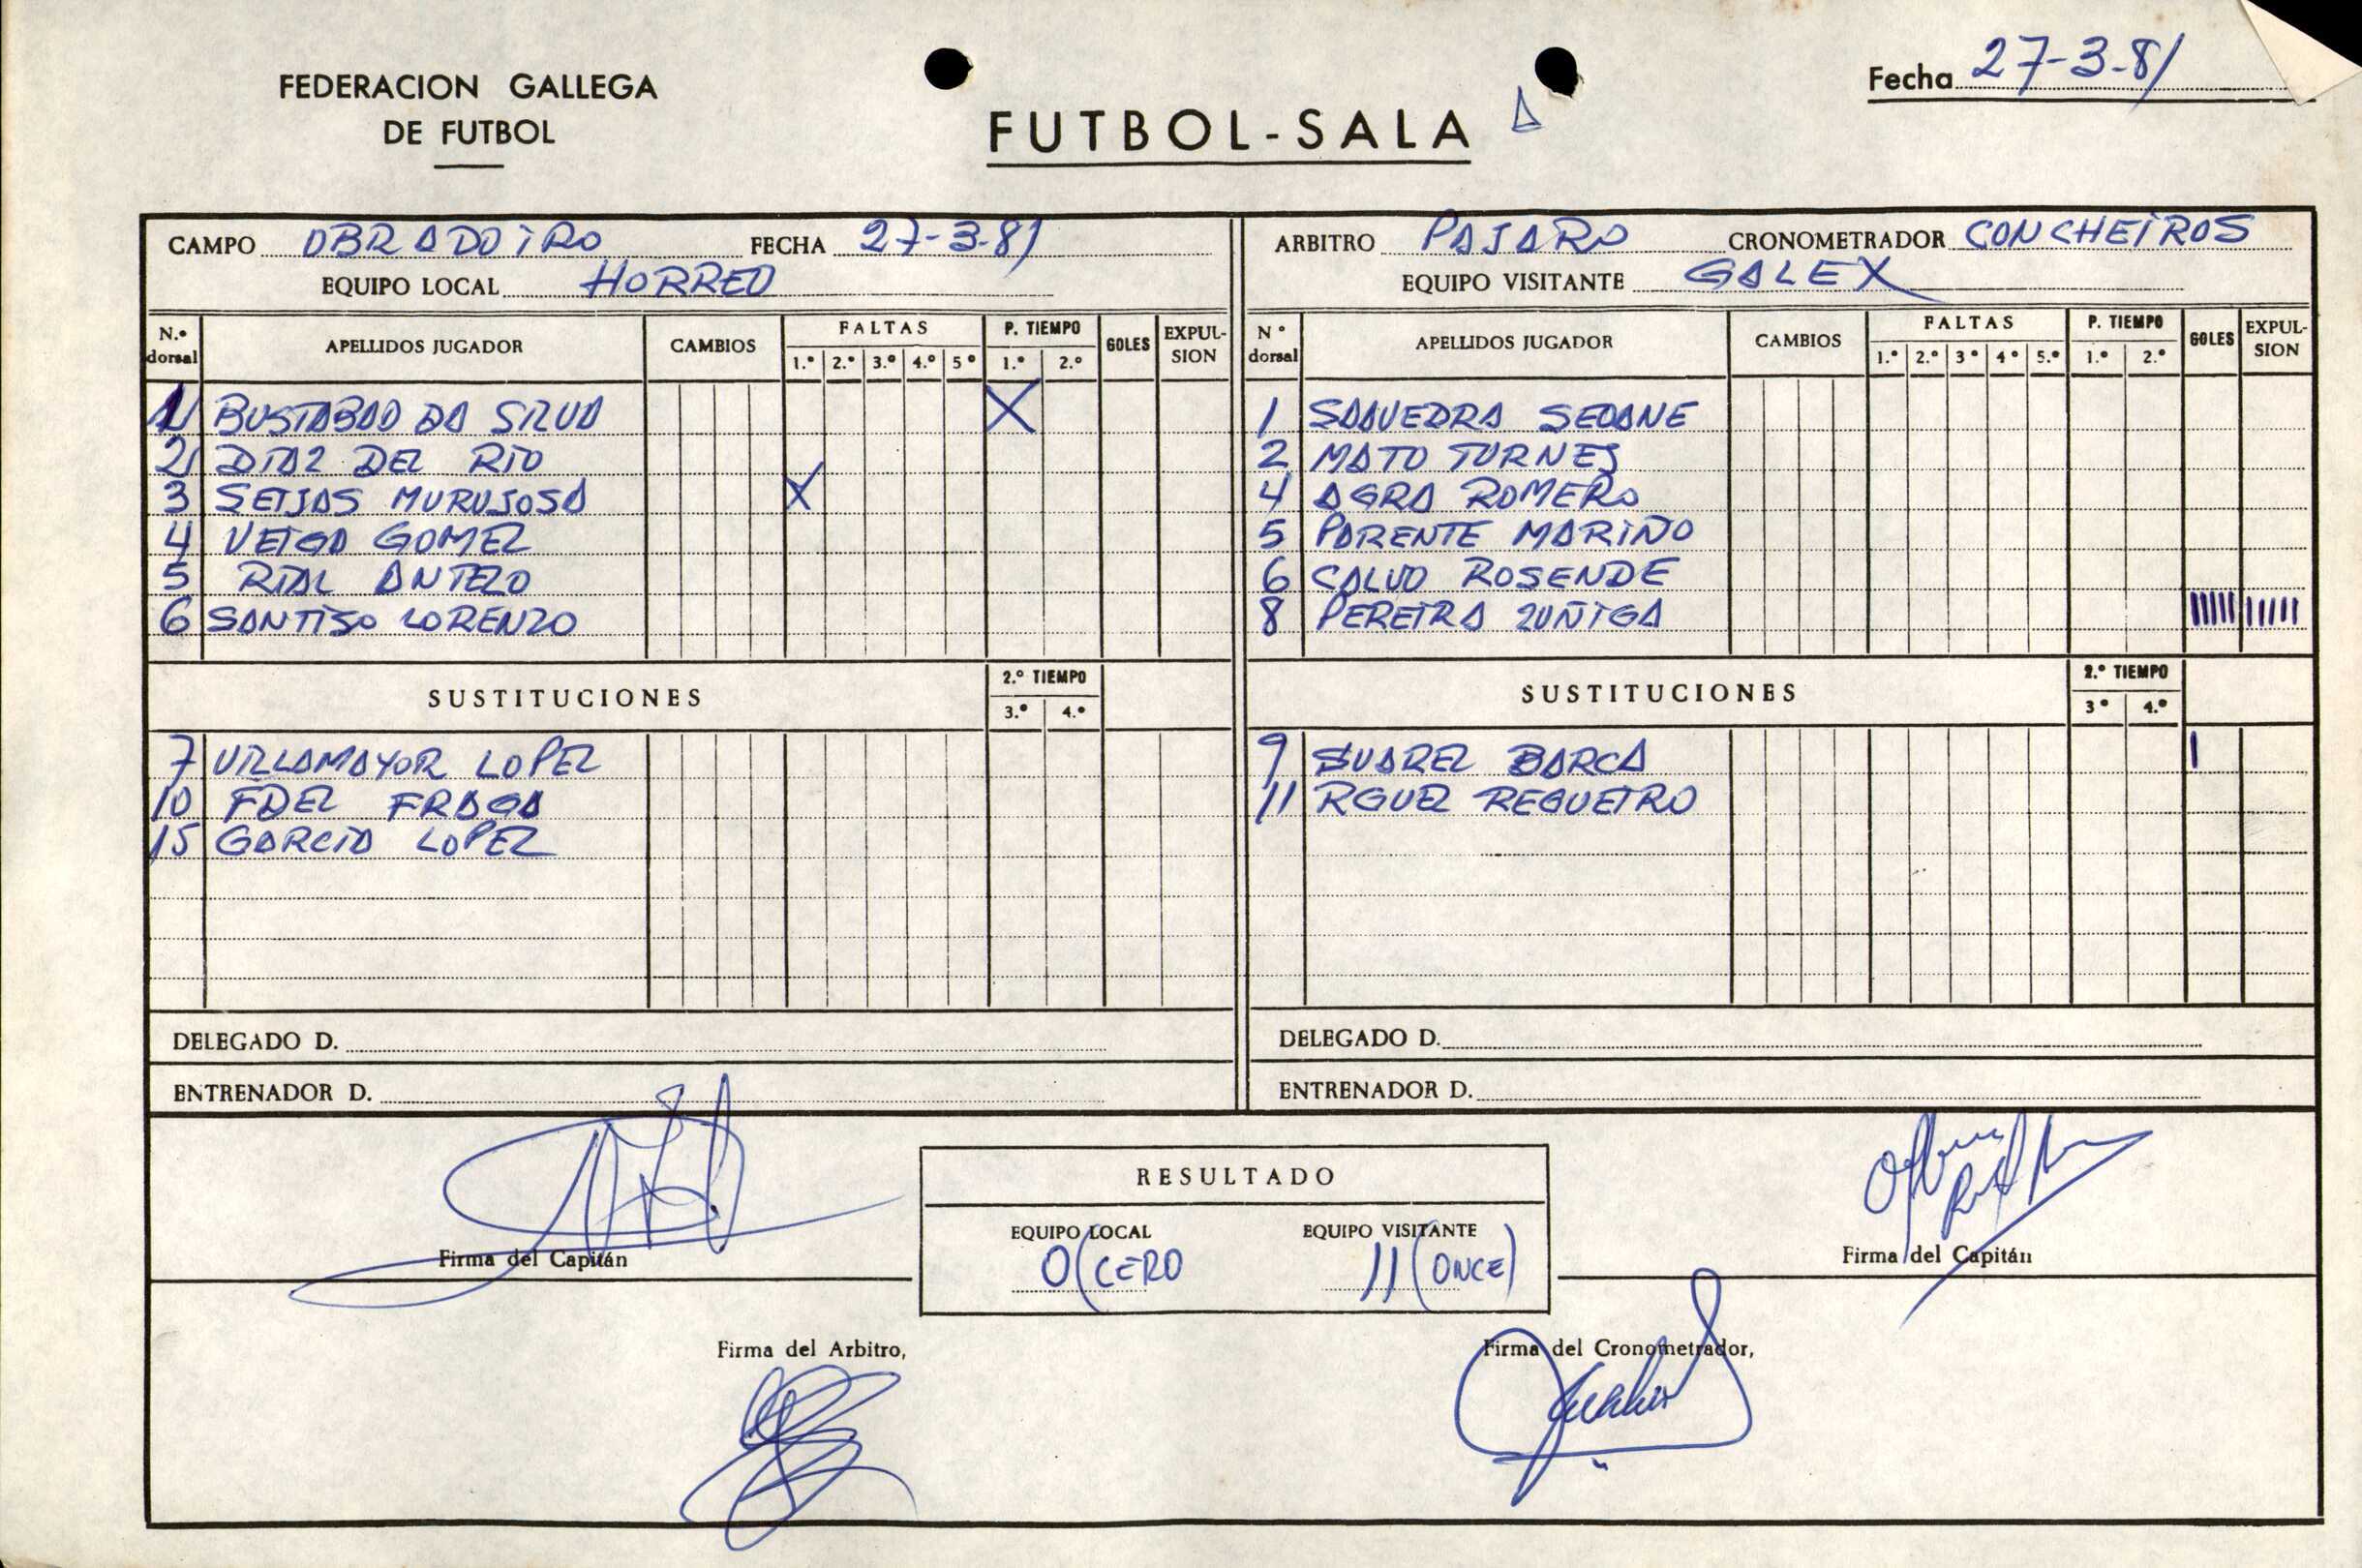 FEDERACION GALLEGA
DE FUTBOL
FUTBOL-SALA
Fecha 27-3-81
CAMPO OBRADOIRO FECHA 27-3-81
EQUIPO LOCAL HORREO
N.º dorsal APELLIDOS JUGADOR CAMBIOS FALTAS 1.º 2.º 3.º 4.º 5º P. TIEMPO 1.º 2.º GOLES EXPULSION
1 BUSTABAD DA SILVA X
2 DIAZ DEL RIO
3 SEIJAS MURUJOSA X
4 VEIGA GOMEZ
5 RIAL ANTELO
6 SANTISO LORENZO
SUSTITUCIONES 2.º TIEMPO 3.º 4.º
7 VILLAMAYOR LOPEZ
10 FDEZ FRAGA
15 GARCIA LOPEZ
DELEGADO D.
ENTRENADOR D.
ARBITRO PAJARO CRONOMETRADOR CONCHEIROS
EQUIPO VISITANTE GALEX
Nº dorsal APELLIDOS JUGADOR CAMBIOS FALTAS 1.º 2.º 3º 4º 5.º P. TIEMPO 1.º 2.º GOLES EXPULSION
1 SAAVEDRA SEOANE
2 MATO TURNES
4 AGRA ROMERO
5 PARENTE MARIÑO
6 CALVO ROSENDE
8 PEREIRA ZUÑIGA
SUSTITUCIONES 2.º TIEMPO 3º 4.º
9 SUAREZ BARCA
11 RGUEZ REGUEIRO
DELEGADO D.
ENTRENADOR D.
Firma del Capitán
RESULTADO
EQUIPO LOCAL EQUIPO VISITANTE
0 (CERO 11 (ONCE)
Firma del Capitán
Firma del Arbitro,
Firma del Cronometrador,